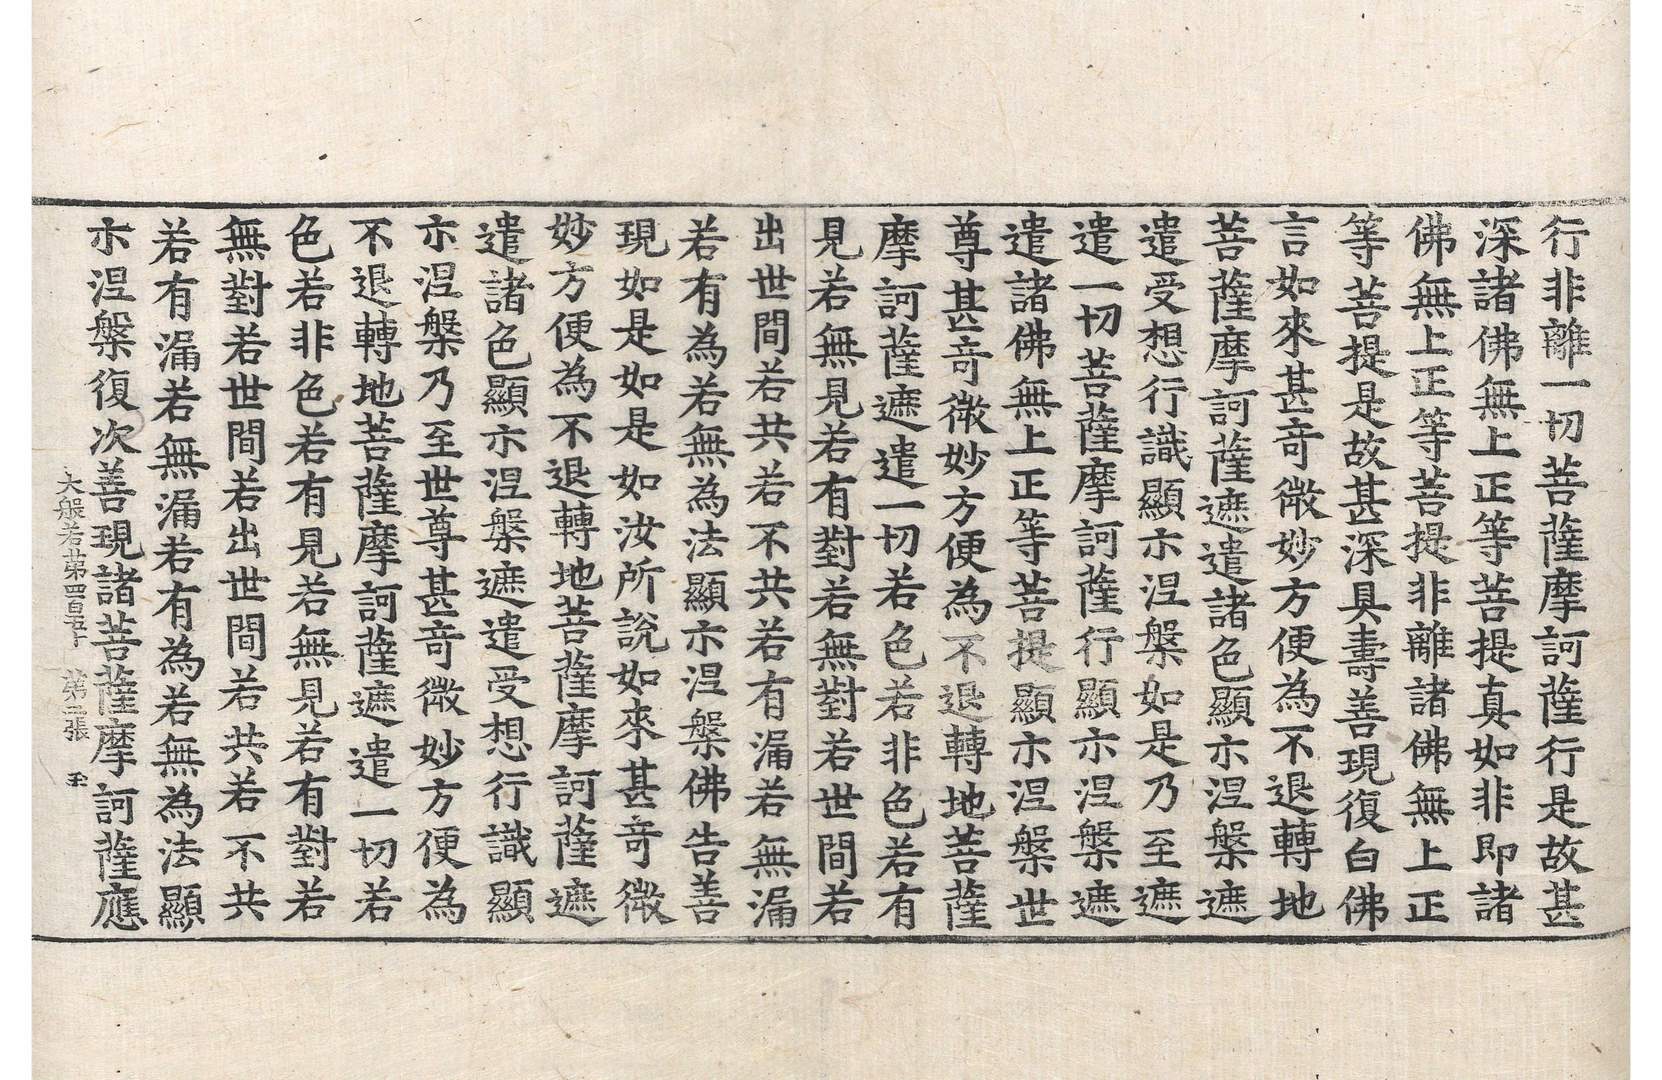 行非離一切菩薩摩訶薩行是故甚
深諸佛無上正等菩提真如非即諸
佛無上正等菩提非離諸佛無上正
等菩提是故甚深具壽善現復白佛
言如來甚竒微妙方便為不退轉地
菩薩摩訶薩遮遣諸色顯示涅槃遮
遣受想行識顯示涅槃如是乃至遮
遣一切菩薩摩訶薩行顯示涅槃遮
遣諸佛無上正等菩提顯示涅槃世
尊甚竒微妙方便為不退轉地菩薩
摩訶薩遮遣一切若色若非色若有
見若無見若有對若無對若世間若
出世間若共若不共若有漏若無漏
若有為若無為法顯示涅槃佛告善
現如是如是如汝所說如來甚竒微
妙方便為不退轉地菩薩摩訶薩遮
遣諸色顯示涅槃遮遣受想行識顯
示涅槃乃至世尊甚竒微妙方便為
不退轉地菩薩摩訶薩遮遣一切若
色若非色若有見若無見若有對若
無對若世間若出世間若共若不共
若有漏若無漏若有為若無為法顯
示涅槃復次善現諸菩薩摩訶薩應
大般若第四百五十 第二張 珠